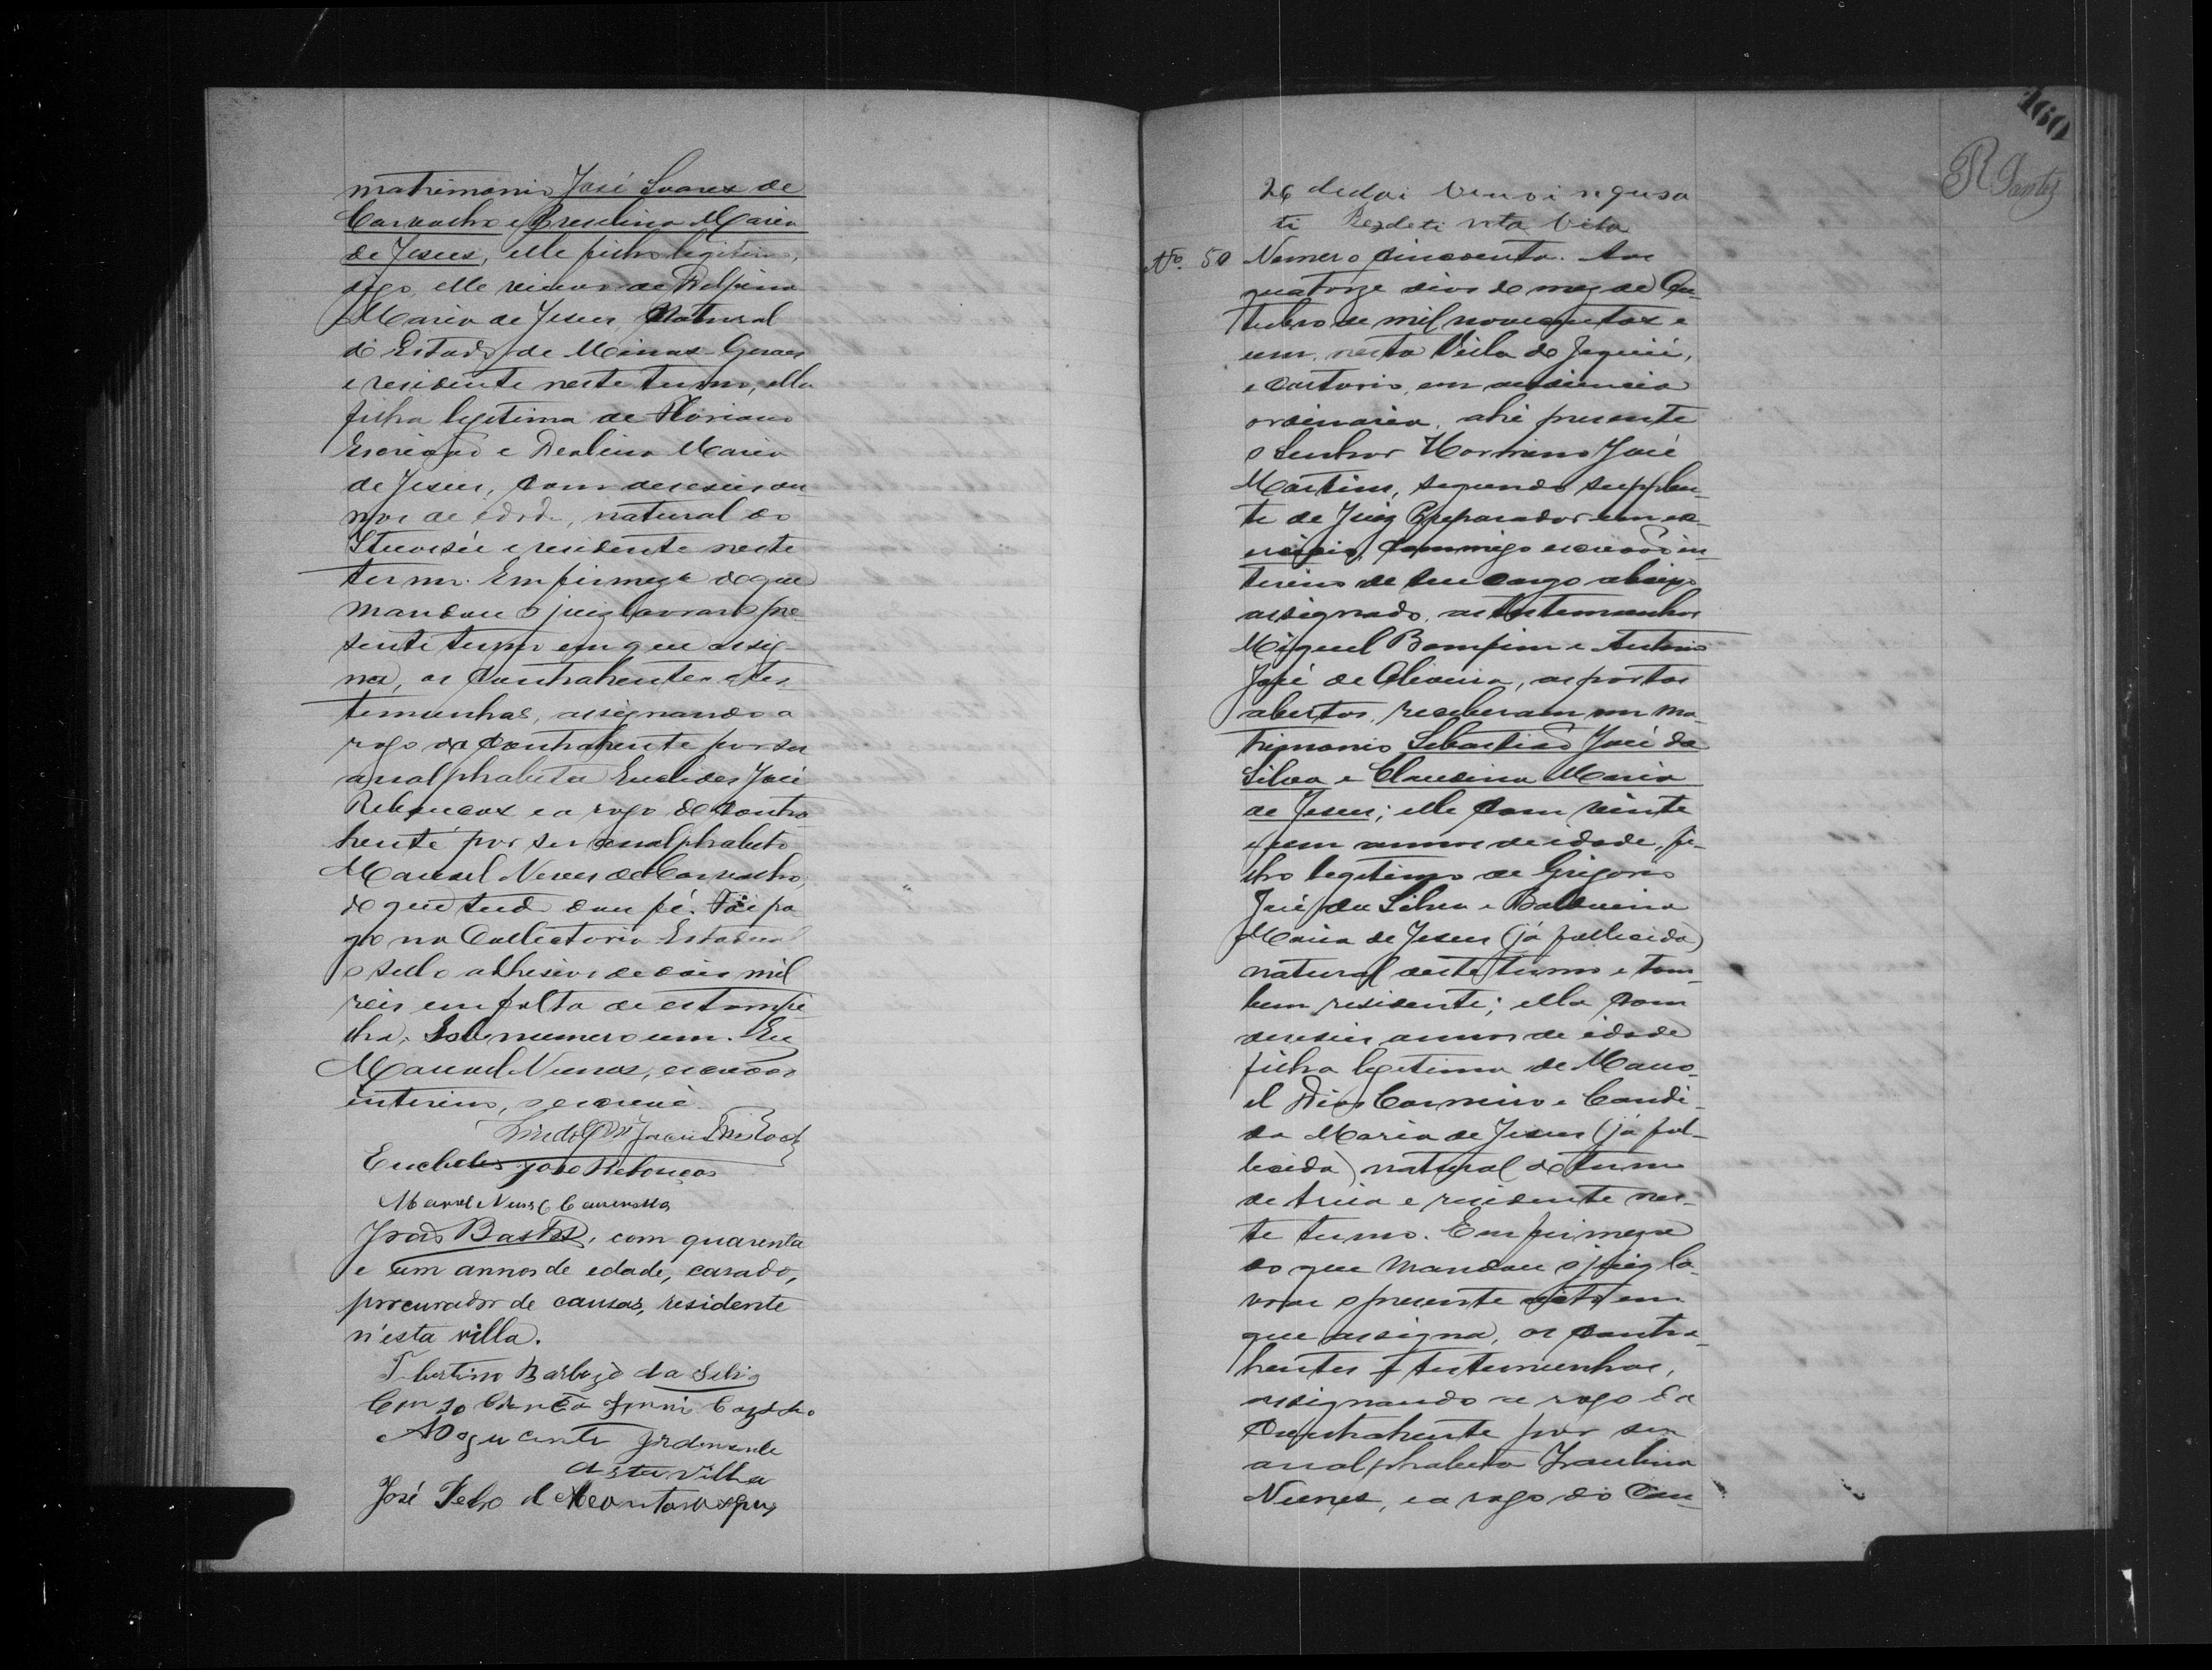 matrimonio José Soares de
Carvalho e Bresilina Maria
de Jesus, elle filho legitimo,
digo, elle viuvo de Delfina
Maria de Jesus, Natural
do Estado de Minas-Geraes
e residente neste termo, ella
filha legitima de Floriano
e Maria
de Jesus, com deseseis an
nos de edade, natural do
e residente neste
termo. Em firmeza do que
mandou o juiz lavrar o pre
sente termo em que assig
na, os contrahentes e tes
temunhas, assignando a
rogo da contrahente por ser
analphabeta Euclides José
Rebouças e a rogo do contra
hente por ser analphabeto
Manuel Neves de Carvalho,
do que tudo dou fé. Foi pa
go na Collectoria Estadual
o sello adhesivo de dois mil
reis em falta de estampi
lha, sob numero um. Eu
Manuel Nunes, escrivão
interino, o escrevi.
Euclides José Rebouças
João Bastos, com quarenta
e um annos de edade, casado,
procurador de causas, residente
n'esta villa.
Barbozo da Silva
desta villa
José Pedro d
160
R Santos
26
No. 50 Numero cincoenta. Aos
quatorze dias do mez de Ou
tubro de mil novecentos e
um, nesta Villa de Jequié,
e cartorio, em audiencia
ordinaria, ahi presente
o Senhor Hormino José
Martins, segundo supplen
te de Juiz Preparador em ex
ercicio, commigo escrivão in
terino de seu cargo abaixo
assignado, as testemunhas
Miguel Bomfim e Antonio
José de Oliveira, as portas
abertas, receberam em ma
trimonio Sebastião José da
Silva e Claudina Maria
de Jesus; elle com vinte
e um annos de idade, fi
lho legitimo de Grigorio
José da Silva e Balduina
Maria de Jesus (já fallecida)
natural deste termo e tam
bem residente; ella com
deseseis annos de idade
filha legitima de Mano
el Dias Carneiro e Candi
da Maria de Jesus (já fal
lecida) natural do termo
de Areia e residente nes
te termo. Em firmeza
do que mandou o juiz la
vrar o presente acto em
que assigna, os contra
hentes e testemunhas,
assignando a rogo da
Contrahente por ser
analphabeta
Nunes, e a rogo do Con